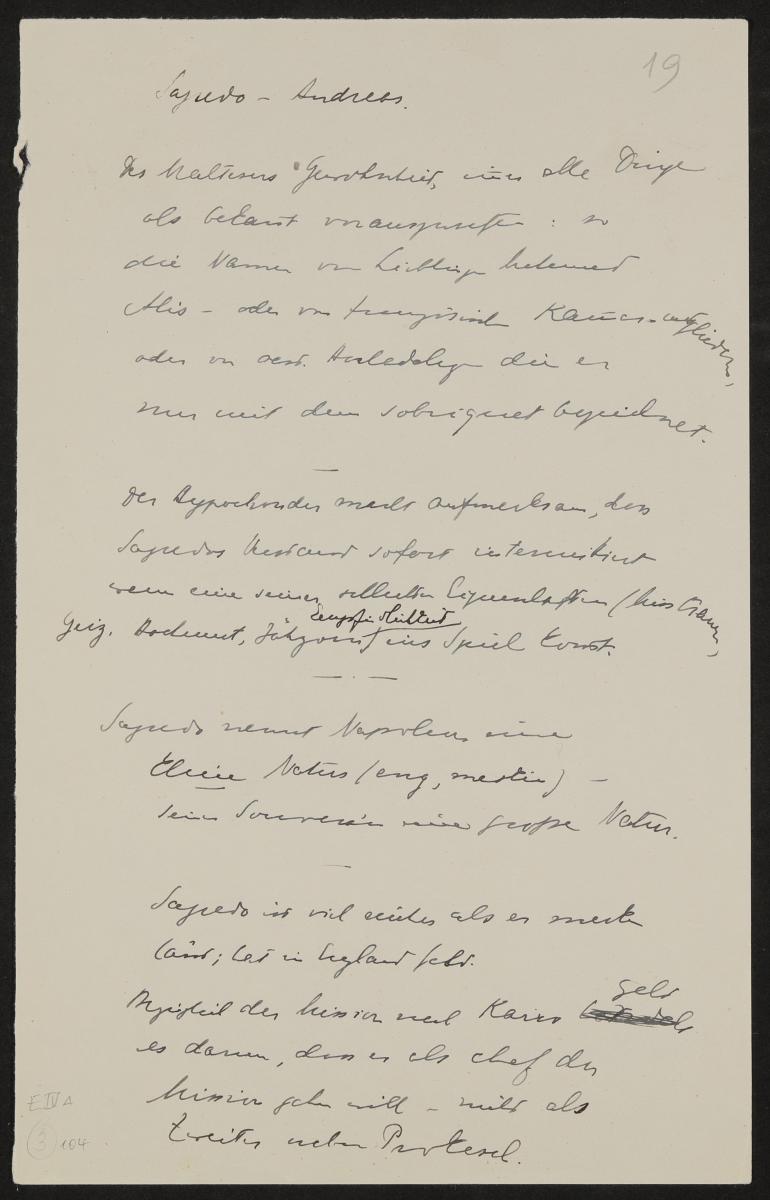 19
Sagredo – Andreas.
Des Maltesers Gewohnheit, immer alle Dinge
als bekannt vorauszusetzen : so
die Namen von Lieblingen Mehemed
Alis – oder von französischen Kammer-mitgliedern,
oder von oest. Adeligen die er
nur mit dem sobriquet bezeichnet.
Der Hypochonder macht aufmerksam, dass
Sagredos Verstand sofort intermittiert
wenn eine seiner schlechten Eigenschaften (Misstrauen,
Empfindlichkeit
Geiz, Hochmut, Jähzorn) ins Spiel kommt.
Sagredo nennt Napoleon eine
kleine Natur (eng, ) –
seinen Souverain eine große Natur.
Sagredo ist viel reicher als er merken
lässt; hat in England Geld.
Bezüglich der Mission nach Kairo geht
es darum, dass er als chef der
Mission gehen will – nicht als
Zweiter neben Prokesch.
E IV A
3 104